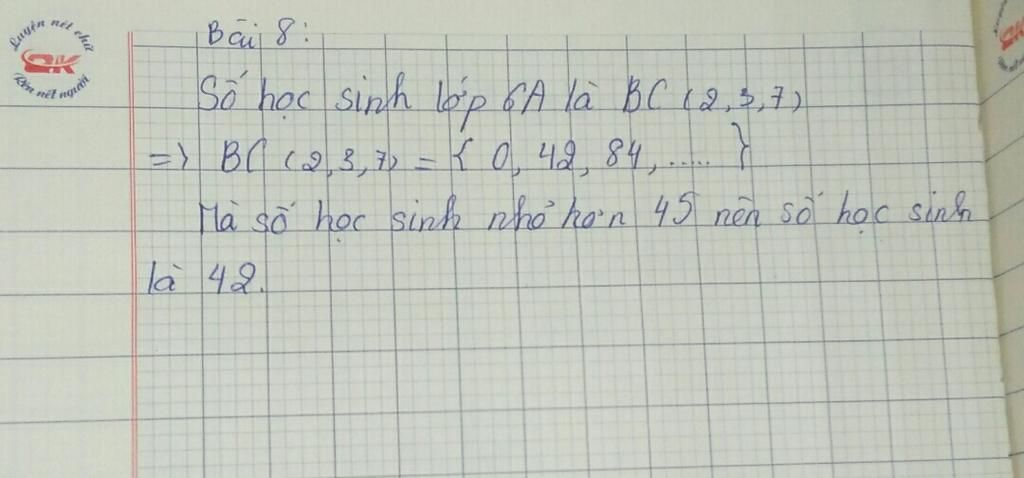 Luyện nét chữ
Rèn nết người
Bài 8:
Số học sinh lớp 6A là BC (2, 3, 7)
=> BC (2, 3, 7) = { 0, 42, 84, ..... }
Mà số học sinh nhỏ hơn 45 nên số học sinh
là 42.